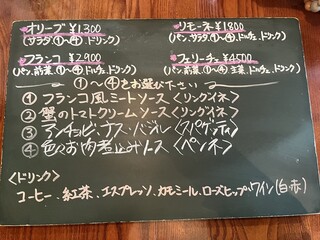 オリーブ ¥1300
(サラダ、①〜④、ドリンク)
リモーネ ¥1800
(パン、サラダ、①〜④、ドルチェ、ドリンク)
フランコ ¥2900
(パン、前菜、①〜④、ドルチェ、ドリンク)
フェリーチェ ¥4500
(パン、前菜、①〜④、主菜、ドルチェ、ドリンク)
①〜④をお選び下さい
① フランコ風ミートソース〈リングイネ〉
② 蟹のトマトクリームソース〈リングイネ〉
③ アンチョビ、ナス、バジル〈スパゲッティ〉
④ 色々お肉煮込みソース〈ペンネ〉
〈ドリンク〉
コーヒー、紅茶、エスプレッソ、カモミール、ローズヒップ、ワイン(白・赤)